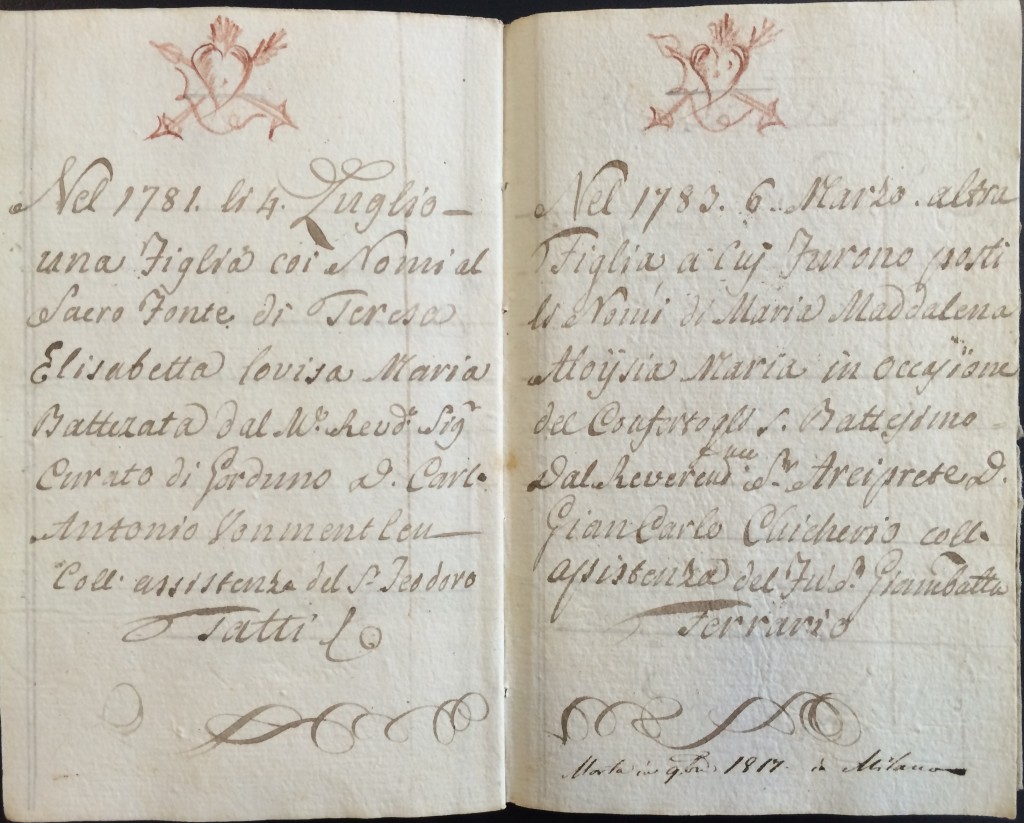 Nel 1781. li 4. Luglio
una Figlia coi Nomi al
Sacro Fonte di Teresa
Elisabetta lovisa Maria
Battezata dal M.o Revd.o Sig.r
Curato di Gorduno D. Carl.
Antonio Vonmentlen
Coll. assistenza del S.r Teodoro
Tatti
Nel 1783. 6. Marzo. altra
Figlia a Cuj Furono posti
li Nomi di Maria Maddalena
Aloÿsia Maria in occasione
del S. Battesimo
Dal Reverend S.r Arciprete D.
Gian Carlo Chicherio coll.
assistenza del Fu S.r Giambatta
Ferrario
Morta in 9bre 1817. in Milano